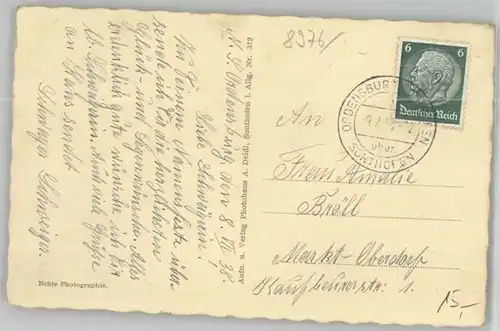 8976/
6
6
Deutsches Reich
ORDENSBURG
über
SONTHOFEN
An
Frau Amalie
Bröll
Markt-Oberdorf
Kaufbeurerstr: 1.
15,-
Aufn. u. Verlag Photohaus A. Deidl, Sonthofen i. Allg. Nr. 312
Echte Photographie.
Ordensburg den 8. VII 38.
Liebe Schwägerin!
Zu Deinem Namensfeste
sende ich Dir die herzlichsten
Glück- und Segenswünsche. Alles
gute wünsche ich Dir
lb. Schwägerin. Auch viele Grüße
an Hans sendet
Schwager